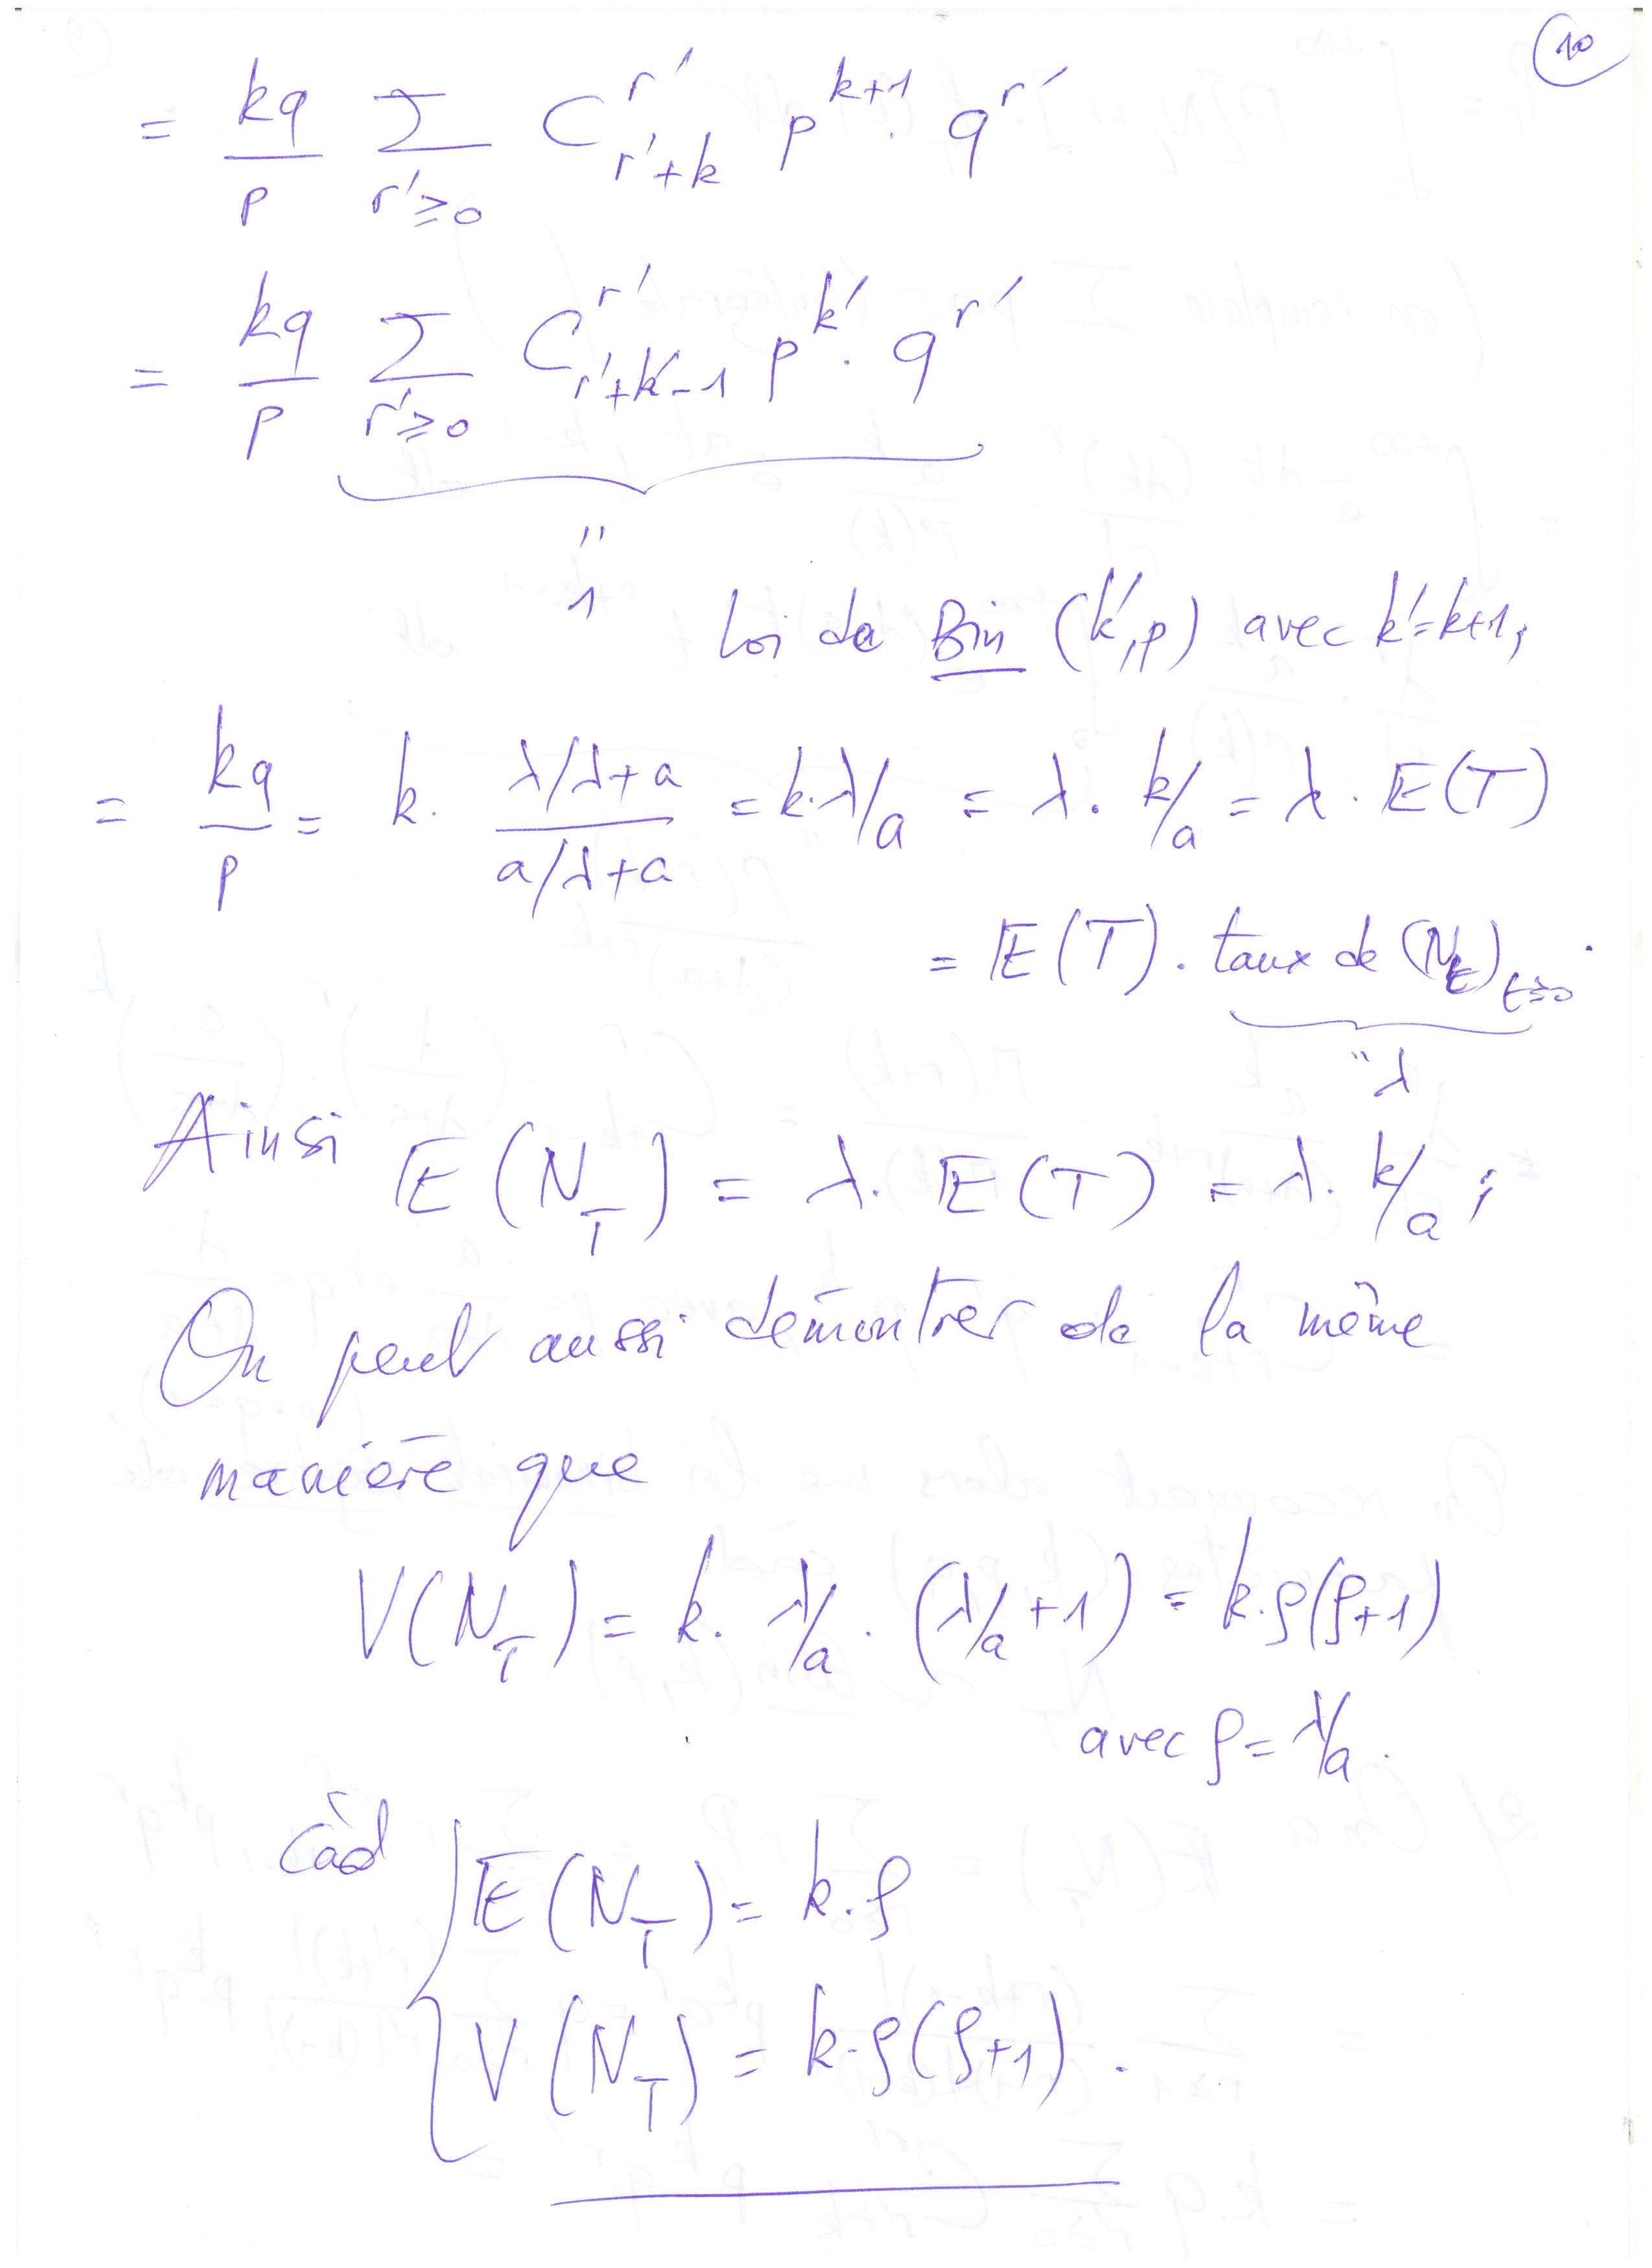 10
= kq/p Σ_{r'≥0} C^{r'}_{r'+k} p^{k+1} . q^{r'}
= kq/p Σ_{r'≥0} C^{r'}_{r'+k'-1} p^{k'} . q^{r'}
"
1
Loi de Bin (k', p) avec k' = k+1 ;
= kq/p = k . (λ/λ+a)/(a/λ+a) = k . λ/a = λ . k/a = λ . E(T)
= E(T) . taux de (N_t)_{t≥0} .
" λ
Ainsi E(N_T) = λ . E(T) = λ . k/a ;
On peut aussi démontrer de la même
manière que
V(N_T) = k . λ/a . (λ/a + 1) = k . ρ(ρ+1)
avec ρ = λ/a .
càd { E(N_T) = k . ρ
V(N_T) = k . ρ(ρ+1) .